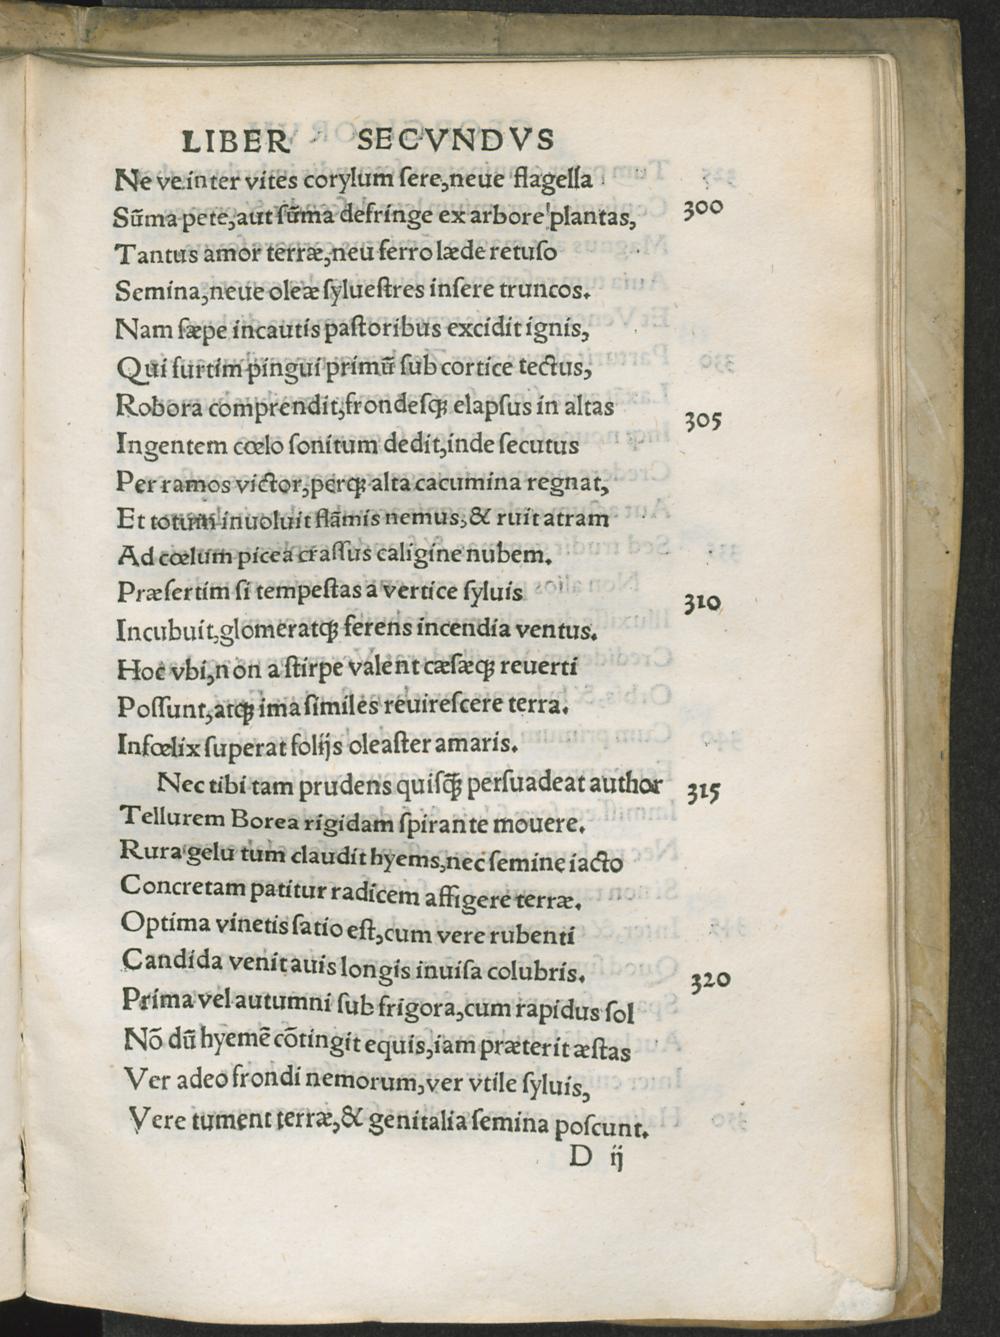 LIBER SECVNDVS
Ne ve inter vites corylum ſere, neue flagella
Sūma pete, aut ſūma defringe ex arbore plantas, 300
Tantus amor terræ, neu ferro læde retuſo
Semina, neue oleæ ſylueſtres inſere truncos.
Nam ſæpe incautis paſtoribus excidit ignis,
Qui furtim pingui primū ſub cortice tectus,
Robora comprendit, frondeſq; elapſus in altas 305
Ingentem cœlo ſonitum dedit, inde ſecutus
Per ramos victor, perq; alta cacumina regnat,
Et totum inuoluit flāmis nemus, & ruit atram
Ad cœlum picea craſſus caligine nubem.
Præſertim ſi tempeſtas a vertice ſyluis 310
Incubuit, glomeratq; ferens incendia ventus.
Hoc vbi, non a ſtirpe valent cæſæq; reuerti
Poſſunt, atq; ima ſimiles reuireſcere terra.
Infœlix ſuperat folijs oleaſter amaris.
Nec tibi tam prudens quiſq̄; perſuadeat author 315
Tellurem Borea rigidam ſpirante mouere.
Rura gelu tum claudit hyems, nec ſemine iacto
Concretam patitur radicem affigere terræ.
Optima vinetis ſatio eſt, cum vere rubenti
Candida venit auis longis inuiſa colubris. 320
Prima vel autumni ſub frigora, cum rapidus ſol
Nō dū hyemē cōtingit equis, iam præterit æſtas
Ver adeo frondi nemorum, ver vtile ſyluis,
Vere tument terræ, & genitalia ſemina poſcunt.
D ij